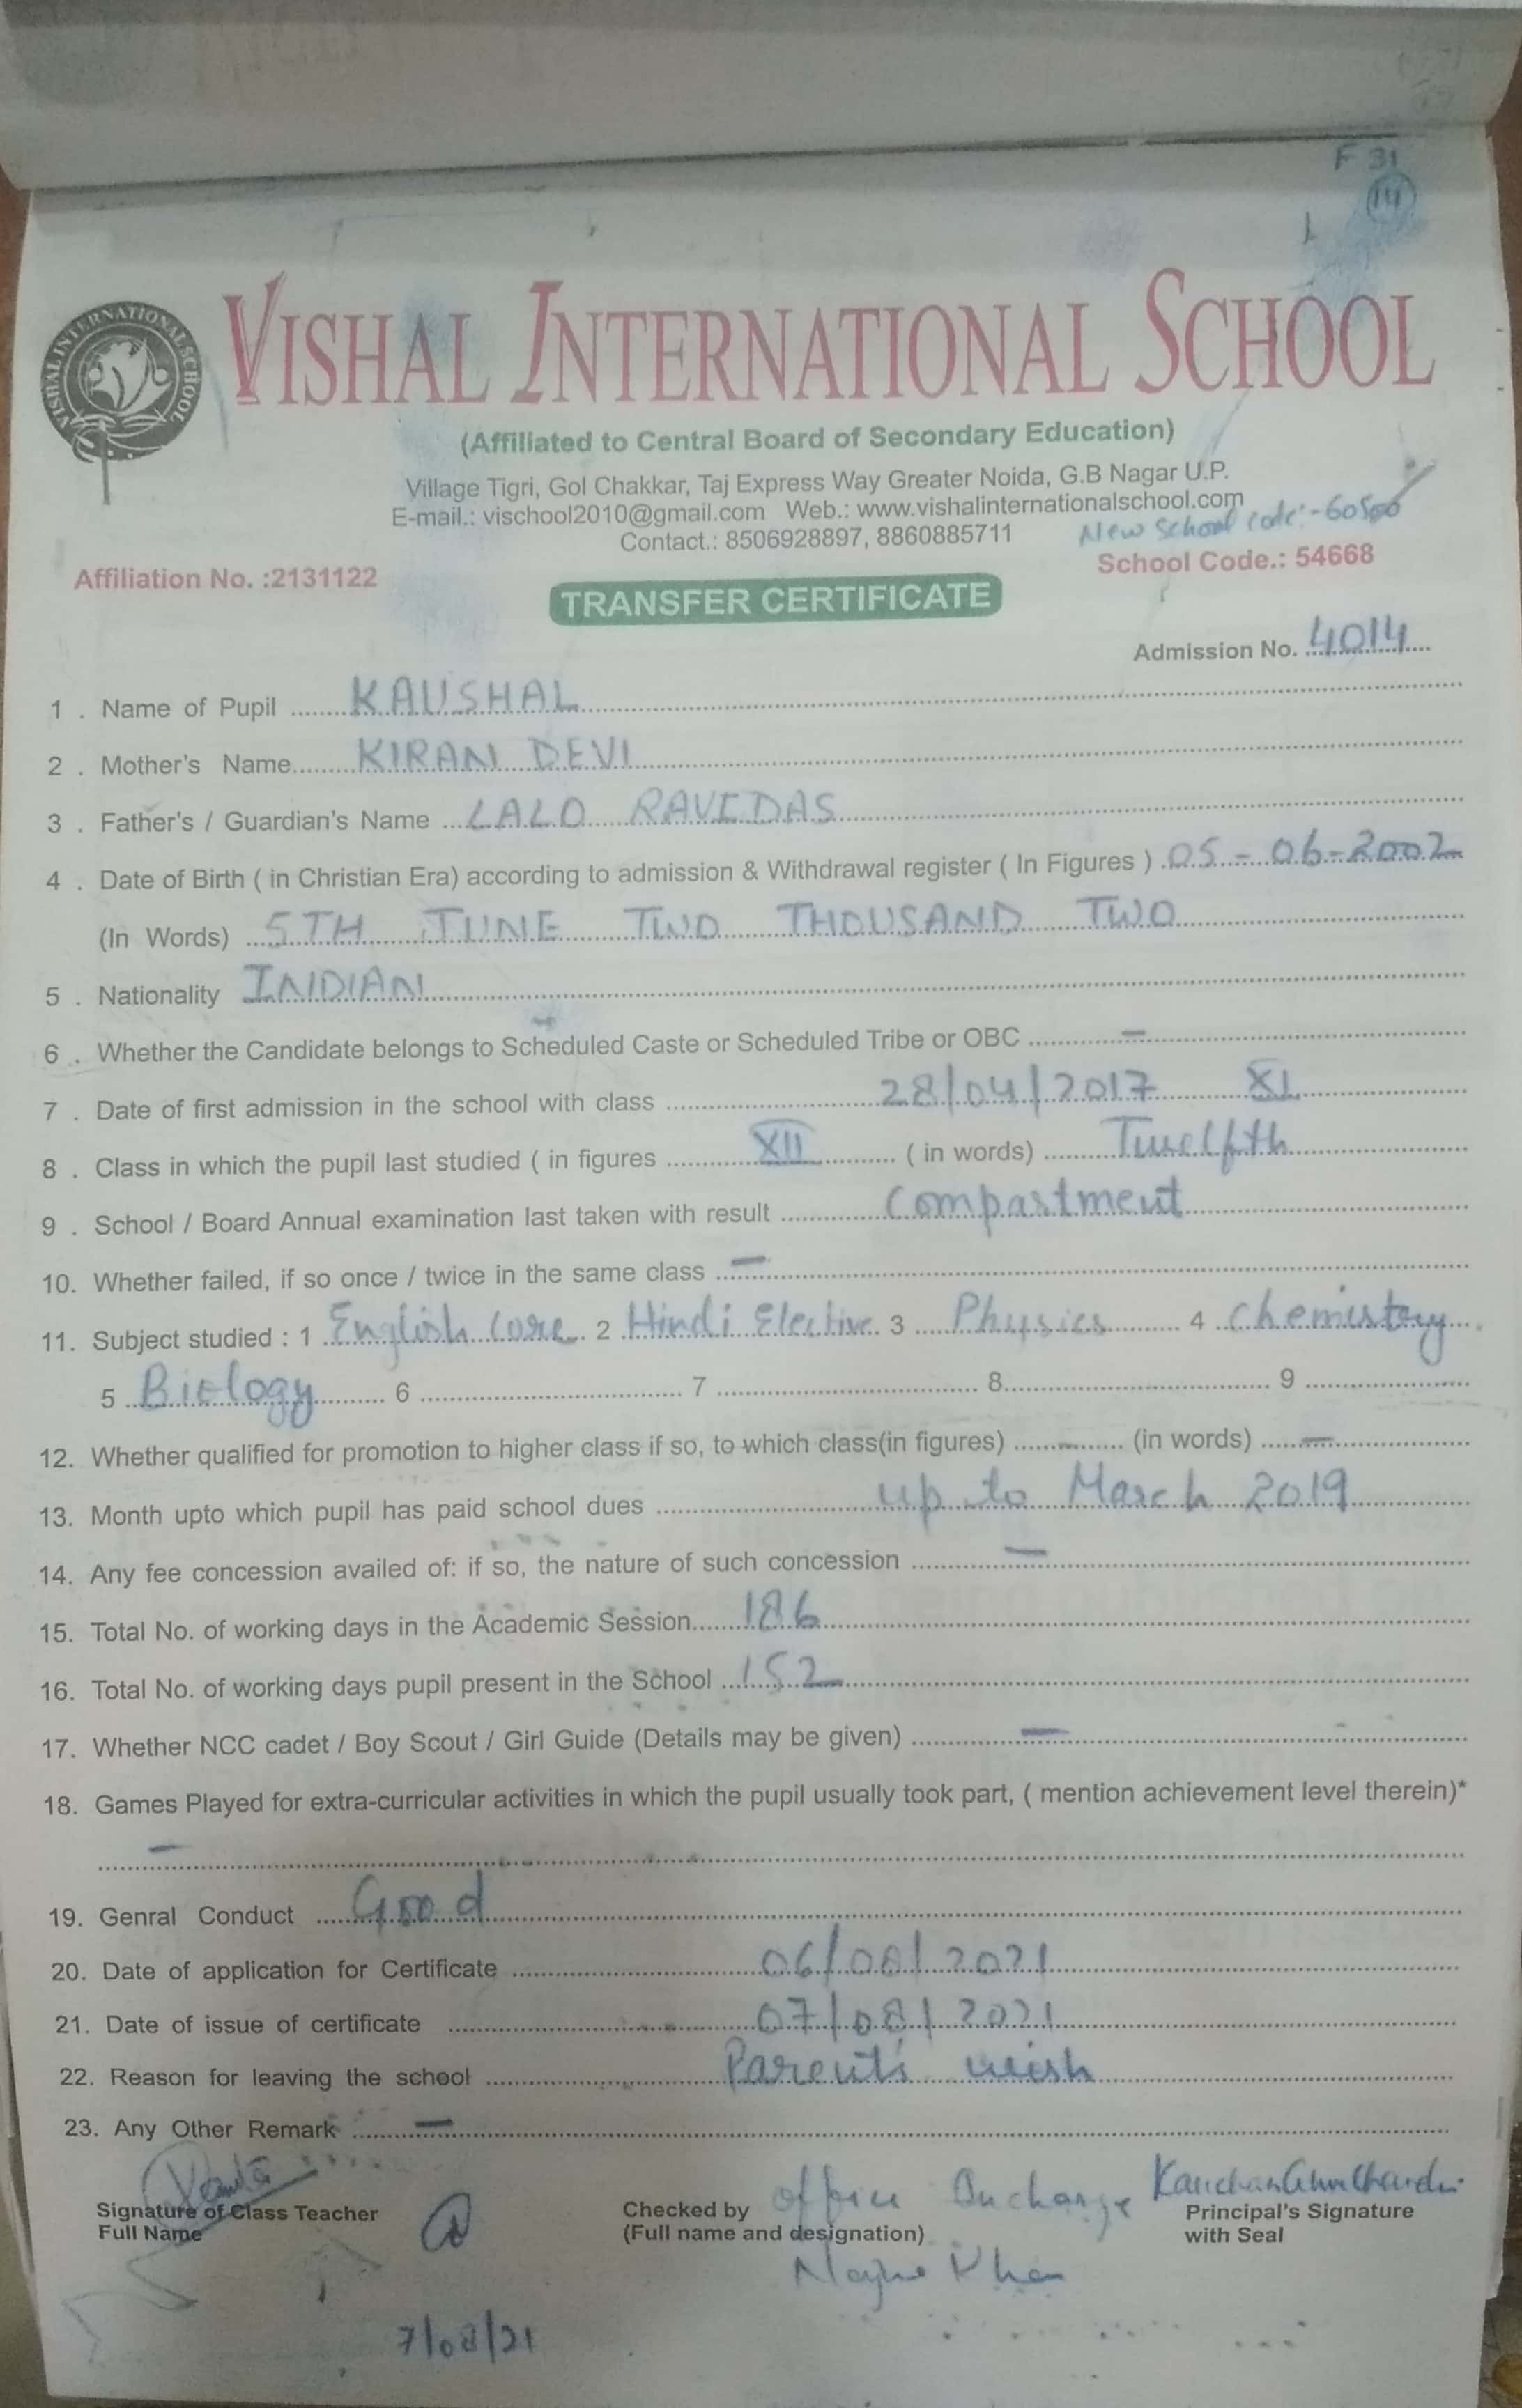 F 31
14
VISHAL INTERNATIONAL SCHOOL
VISHAL INTERNATIONAL SCHOOL
(Affiliated to Central Board of Secondary Education)
Village Tigri, Gol Chakkar, Taj Express Way Greater Noida, G.B Nagar U.P.
E-mail.: vischool2010@gmail.com Web.: www.vishalinternationalschool.com
Contact.: 8506928897, 8860885711
New School code:-60500
Affiliation No. :2131122 School Code.: 54668
TRANSFER CERTIFICATE
Admission No. 4014
1 . Name of Pupil KAUSHAL
2 . Mother's Name KIRAN DEVI
3 . Father's / Guardian's Name LALO RAVIDAS
4 . Date of Birth ( in Christian Era) according to admission & Withdrawal register ( In Figures ) 05-06-2002
(In Words) 5TH JUNE TWO THOUSAND TWO
5 . Nationality INDIAN
6 . Whether the Candidate belongs to Scheduled Caste or Scheduled Tribe or OBC —
7 . Date of first admission in the school with class 28/04/2017 XI
8 . Class in which the pupil last studied ( in figures XII ( in words) Twelfth
9 . School / Board Annual examination last taken with result Compartment
10. Whether failed, if so once / twice in the same class —
11. Subject studied : 1 English Core 2 Hindi Elective 3 Physics 4 Chemistry
5 Biology 6 7 8 9
12. Whether qualified for promotion to higher class if so, to which class(in figures) — (in words) —
13. Month upto which pupil has paid school dues up to March 2019
14. Any fee concession availed of: if so, the nature of such concession —
15. Total No. of working days in the Academic Session 186
16. Total No. of working days pupil present in the School 152
17. Whether NCC cadet / Boy Scout / Girl Guide (Details may be given) —
18. Games Played for extra-curricular activities in which the pupil usually took part, ( mention achievement level therein)*
—
19. Genral Conduct Good
20. Date of application for Certificate 06/08/2021
21. Date of issue of certificate 07/08/2021
22. Reason for leaving the school Parent's wish
23. Any Other Remark —
Signature of Class Teacher Checked by Office Incharge Principal's Signature
Full Name (Full name and designation) with Seal
Khan
7/08/21